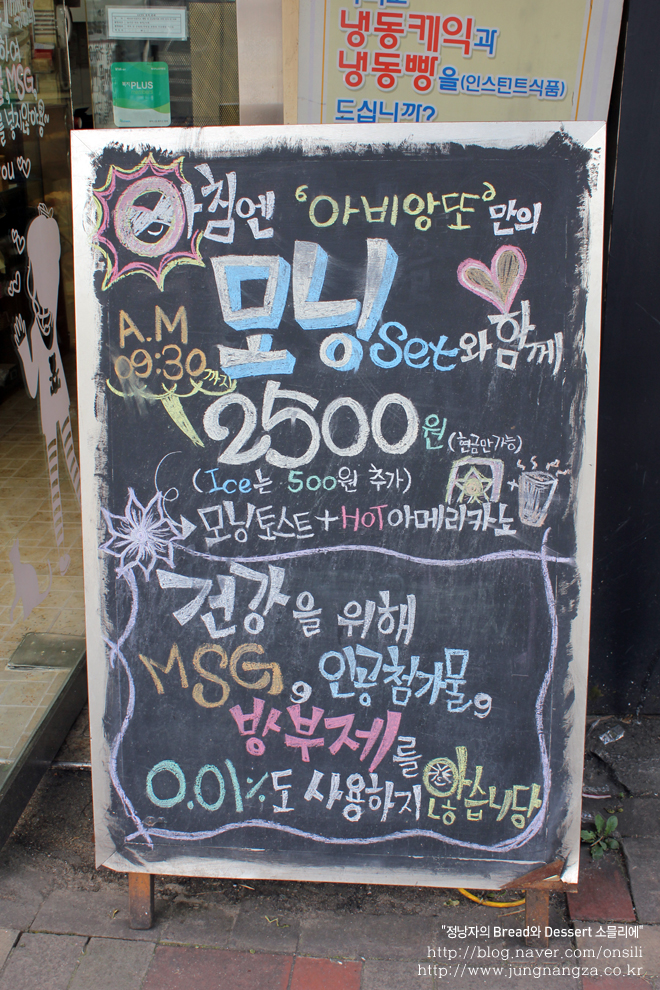 냉동케익과
냉동빵을(인스턴트식품)
도십니까?
PLUS
MSG
ou
아침엔 "아비앙또"만의
모닝 Set와 함께
A.M
09:30까지
2500원 (현금만가능)
(Ice는 500원 추가)
모닝토스트+HOT아메리카노
건강을 위해
MSG, 인공첨가물,
방부제를
0.01%도 사용하지 않습니당
"정낭자의 Bread와 Dessert 소믈리에"
http://blog.naver.com/onsili
http://www.jungnangza.co.kr